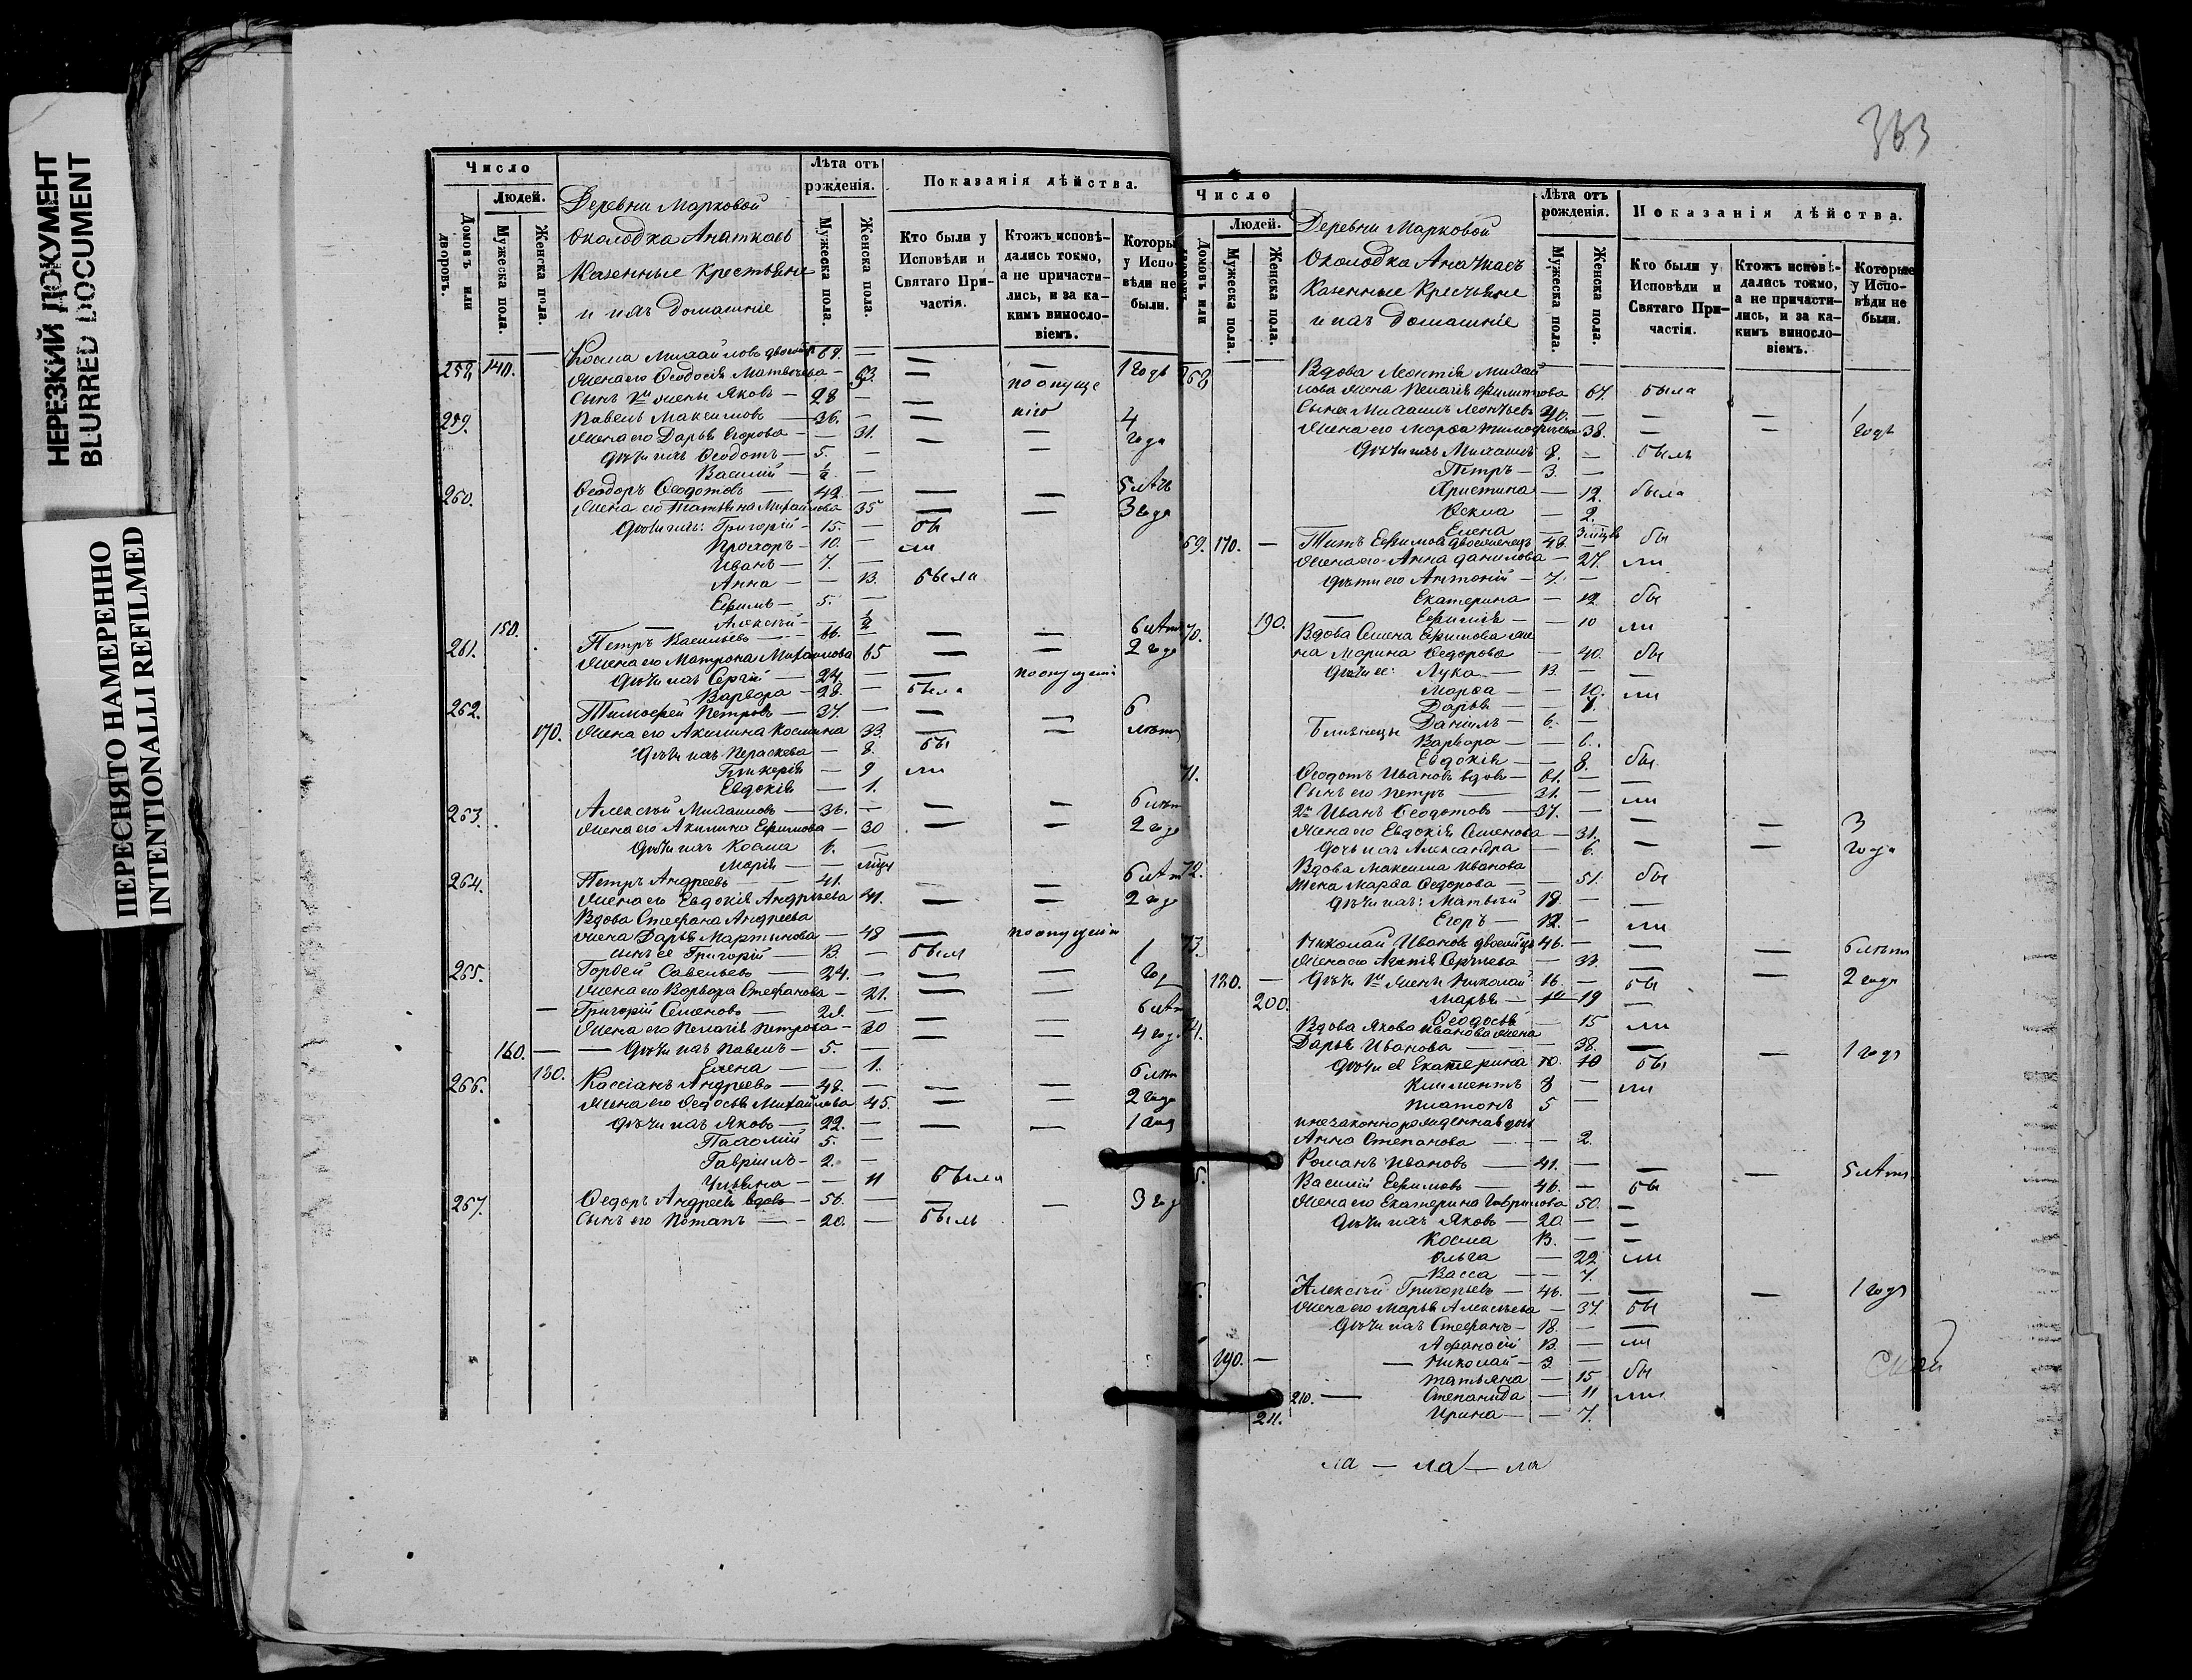 НЕРЕЗКИЙ ДОКУМЕНТ
BLURRED DOCUMENT
ПЕРЕСНЯТО НАМЕРЕННО
INTENTIONALLI REFILMED
Число
Людей.
Домовъ или дворовъ.
Мужеска пола.
Женска пола.
Деревни Марковой
Околодка
Казенные Крестьяне
и ихъ домашніе
Лѣта отъ рожденія.
Мужеска пола.
Женска пола.
Показанія дѣйства.
Кто были у Исповѣди и Святаго Причастія.
Ктожъ исповѣдались токмо, а не причастились, и за какимъ винословіемъ.
Которы у Испо- вѣди не были.
Косма Михайловъ 69. — — —
258. 140. Жена его Ѳеодосія Матвѣева — 63. — 1 годъ
Сынъ жены Яковъ — 28 — —
259. Павелъ Максимовъ — 36. — — 4
Жена его Дарья Егорова — — 31. — — года
Дѣти ихъ Ѳеодотъ — 5. —
Василій — ½ —
260. Ѳеодоръ Ѳеодотовъ — 42. — — — 5 лѣтъ
Жена его Татьяна Михайлова 35 — — 3 года
Дѣти ихъ: Григорій — 15. — бы
Прохоръ — 10. — ли
Иванъ — 7. —
Анна — — 13. была
Ефимъ — 5. —
Алексѣй — ½
150.
261. Петръ Васильевъ — 66. — — —
Жена его Матрона Михайлова 65 — — 2 года
Дѣти ихъ Сергій — 24. — —
Варвара — 28. — была
262. Тимофей Петровъ — 37. — — — 6
170. Жена его Акилина Космина 33. — — лѣтъ
Дѣти ихъ Параскева — 8. бы
Гликерія — 9 ли
Евдокія — 1.
263. Алексѣй Михайловъ — 36. — — —
Жена его Акилина Ефимова — 30 — — 2 года
Дѣти ихъ Косма 6. —
Марія — —
264. Петръ Андреевъ — 41. — —
Жена его Евдокія Андреева 41. — — 2 года
Вдова Стефана Андреева
жена Дарья Мартынова — 48 —
сынъ ея Григорій — 13. — былъ
265. Гордей Савельевъ — 24. — — — 1
Жена его Варвара Стефанова — 21. — — год
— Григорій Семеновъ — 28. — — —
Жена его Пелагія Петрова — 30 — — 4 год
160. — — Дѣти ихъ Павелъ — 5. —
180. Елена — — 1.
266. Кассіанъ Андреевъ — 48. — — —
Жена его Ѳедосья Михайлова 45. — — 2 года
Дѣти ихъ Яковъ — 22. — — — 1 год
Пахомій 5. —
Гавріилъ — 2. —
Ульяна — — 11 была
267. Ѳедоръ Андреевъ вдовъ — 56. — — — 3 год
Сынъ его Потапъ — 20. — былъ
363
Число
Людей.
Домовъ или
Мужеска пола.
Женска пола.
Деревни Марковой
Околодка
Казенные Крестьяне
и ихъ домашніе
Лѣта отъ рожденія.
Мужеска пола.
Женска пола.
Показанія дѣйства.
Кто были у Исповѣди и Святаго Причастія.
Ктожъ исповѣ- дались токмо, а не причасти- лись, и за ка- кимъ виносло- віемъ.
Которые у Испо- вѣди не были.
268 Вдова Леонтія Михай
лова жена Пелагія Филиппова 67. была
Сынъ Михаилъ Леонтьевъ 40. — — — 1
Жена его Марѳа Тимофеева 38. — — годъ
Дѣти ихъ Михаилъ 8. — былъ
Петръ — 3. —
Христина — 12. была
Ѳекла — 2.
Елена —
69. 170. — Титъ Ефимовъ двоеженецъ — 48. бы
Жена его Анна Данилова — 27. ли
Дѣти его Антоній — 7. —
Екатерина — 12. бы
190. — Ефимія — — 10 ли
70. Вдова Семена Ефимова же
на Марина Ѳедорова — 40. бы
Дѣти ее: Лука — 13. — —
Марѳа — — 10. ли
Дарья — — 7.
Близнецы Даніилъ — 6. —
Варвара — — 6.
Евдокія — — 8. бы
71. Ѳеодотъ Ивановъ вдовъ — 61. — —
Сынъ его Петръ — 31. — ли
2й Иванъ Ѳеодотовъ — 37. — — — 3
Жена его Евдокія Семенова — 31. — — года
Дочь ихъ Александра — 6.
72. Вдова Максима Иванова
жена Марѳа Ѳедорова — — 51. бы
Дѣти ихъ: Матвѣй 18. — —
Егоръ — 12. — ли
73. Николай Ивановъ 46. — — — 6 лѣтъ
Жена его Агапія Сергѣева — 33. — — 2 года
180. — Дѣти жены Николай 16. — бы
200. Марья — 19 —
Ѳеодосья — 15 ли
74. Вдова Якова Иванова жена
Дарья Иванова — — 38. — — 1 годъ
Дѣти ея Екатерина 10. 10 бы
Климентъ 8 — ли
Платонъ 5 —
и незаконнорожденная дочь
Анна Степанова — — 2.
Романъ Ивановъ — 41. — — — 5 лѣтъ
75. Василій Ефимовъ — 46. — бы
Жена его Екатерина Гаврилова 50. —
Дѣти ихъ Яковъ — 20. — —
Косма 13. — —
Ольга — 22 ли
Васса — — 7.
Алексѣй Григорьевъ — 46. — — — 1 годъ
Жена его Марья Алексѣева — 37. бы
Дѣти ихъ Стефанъ — 18. — —
Афанасій 13. — ли
190. — — Николай — 3. —
Татьяна — 15 бы
210. — Степанида — 11 ли
211. Ирина — — 7.
ла — ла — ла